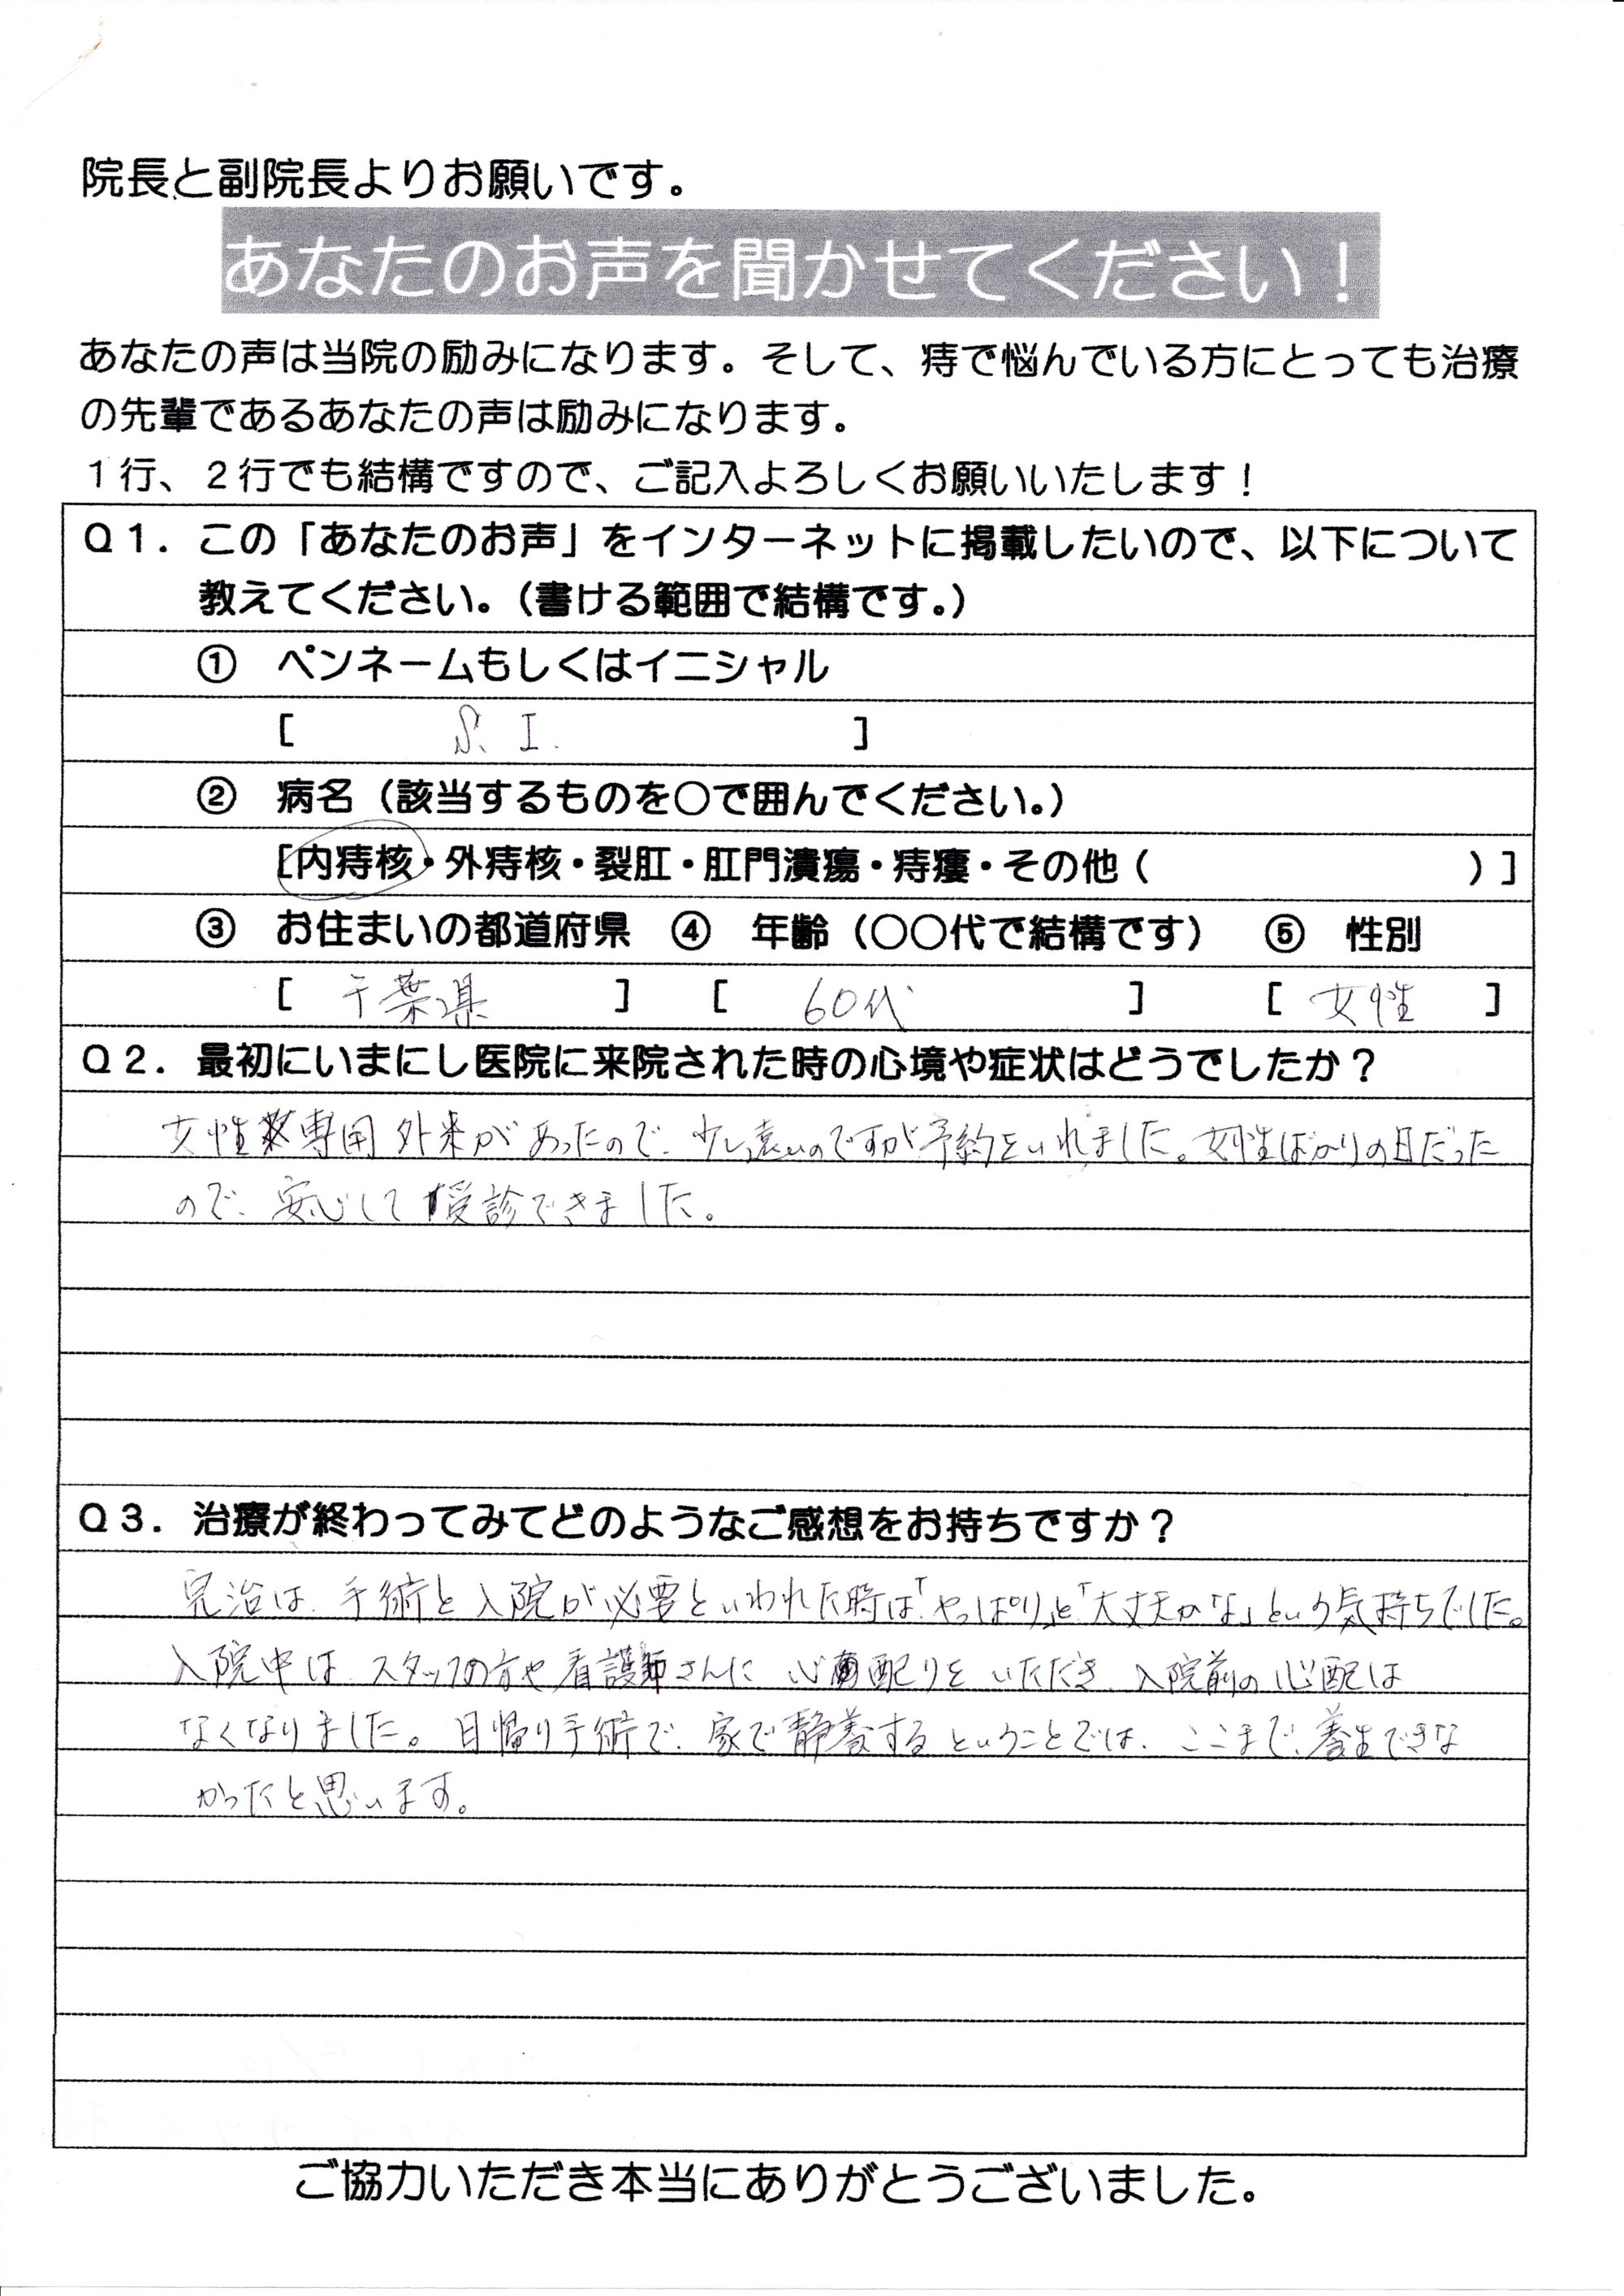 院長と副院長よりお願いです。
あなたのお声を聞かせてください！
あなたの声は当院の励みになります。そして、痔で悩んでいる方にとっても治療
の先輩であるあなたの声は励みになります。
１行、２行でも結構ですので、ご記入よろしくお願いいたします！
Ｑ１．この「あなたのお声」をインターネットに掲載したいので、以下について
教えてください。（書ける範囲で結構です。）
① ペンネームもしくはイニシャル
[ S. I. ]
② 病名（該当するものを○で囲んでください。）
[内痔核・外痔核・裂肛・肛門潰瘍・痔瘻・その他（ ）]
③ お住まいの都道府県 ④ 年齢（○○代で結構です） ⑤ 性別
[ 千葉県 ] [ 60代 ] [ 女性 ]
Ｑ２．最初にいまにし医院に来院された時の心境や症状はどうでしたか？
女性専用外来があったので、少し遠いのですが予約をいれました。女性ばかりの日だった
ので、安心して受診できました。
Ｑ３．治療が終わってみてどのようなご感想をお持ちですか？
完治は、手術と入院が必要といわれた時は「やっぱり」と「大丈夫かな」という気持ちでした。
入院中は、スタッフの方や看護師さんに心配りをいただき、入院前の心配は
なくなりました。日帰り手術で、家で静養するということでは、ここまで、養生できな
かったと思います。
ご協力いただき本当にありがとうございました。